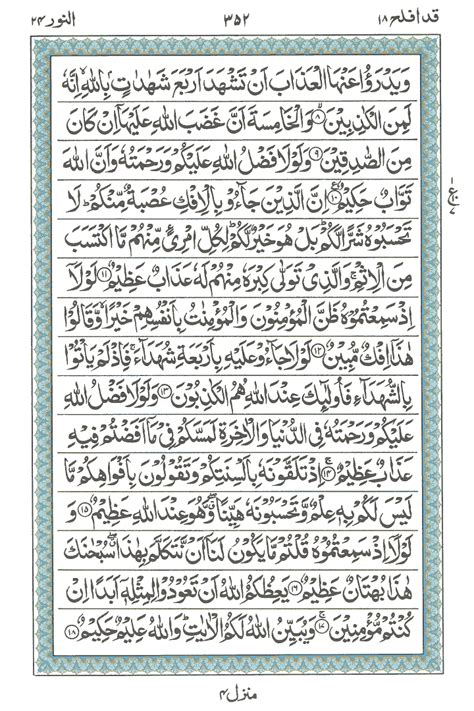 قد افلح ١٨
٣٥٢
النور ٢٤
وَيَدْرَؤُا عَنْهَا الْعَذَابَ اَنْ تَشْهَدَ اَرْبَعَ شَهٰدٰتٍۭ بِاللّٰهِ اِنَّهٗ
لَمِنَ الْكٰذِبِيْنَ ۙ‏﴿۸﴾ وَالْخَامِسَةَ اَنَّ غَضَبَ اللّٰهِ عَلَيْهَاۤ اِنْ كَانَ
مِنَ الصّٰدِقِيْنَ ﴿۹﴾ وَلَوْلَا فَضْلُ اللّٰهِ عَلَيْكُمْ وَرَحْمَتُهٗ وَاَنَّ اللّٰهَ
تَوَّابٌ حَكِيْمٌ ﴿۱۰﴾ اِنَّ الَّذِيْنَ جَآءُوْ بِالْاِفْكِ عُصْبَةٌ مِّنْكُمْ ؕ لَا
تَحْسَبُوْهُ شَرًّا لَّكُمْ ؕ بَلْ هُوَ خَيْرٌ لَّكُمْ ؕ لِكُلِّ امْرِیٴٍ مِّنْهُمْ مَّا اكْتَسَبَ
مِنَ الْاِثْمِ ۚ وَالَّذِيْ تَوَلّٰى كِبْرَهٗ مِنْهُمْ لَهٗ عَذَابٌ عَظِيْمٌ ﴿۱۱﴾ لَوْلَاۤ
اِذْ سَمِعْتُمُوْهُ ظَنَّ الْمُؤْمِنُوْنَ وَالْمُؤْمِنٰتُ بِاَنْفُسِهِمْ خَيْرًا ۙ وَّقَالُوْا
هٰذَاۤ اِفْكٌ مُّبِيْنٌ ﴿۱۲﴾ لَوْلَا جَآءُوْ عَلَيْهِ بِاَرْبَعَةِ شُهَدَآءَ ۚ فَاِذْ لَمْ يَاْتُوْا
بِالشُّهَدَآءِ فَاُولٰٓئِكَ عِنْدَ اللّٰهِ هُمُ الْكٰذِبُوْنَ ﴿۱۳﴾ وَلَوْلَا فَضْلُ اللّٰهِ
عَلَيْكُمْ وَرَحْمَتُهٗ فِي الدُّنْيَا وَالْاٰخِرَةِ لَمَسَّكُمْ فِيْ مَاۤ اَفَضْتُمْ فِيْهِ
عَذَابٌ عَظِيْمٌ ﴿۱۴﴾ اِذْ تَلَقَّوْنَهٗ بِاَلْسِنَتِكُمْ وَتَقُوْلُوْنَ بِاَفْوَاهِكُمْ مَّا
لَيْسَ لَكُمْ بِهٖ عِلْمٌ وَّتَحْسَبُوْنَهٗ هَيِّنًا ۖ وَّهُوَ عِنْدَ اللّٰهِ عَظِيْمٌ ﴿۱۵﴾ وَ
لَوْلَاۤ اِذْ سَمِعْتُمُوْهُ قُلْتُمْ مَّا يَكُوْنُ لَنَاۤ اَنْ نَّتَكَلَّمَ بِهٰذَا ۖ سُبْحٰنَكَ
هٰذَا بُهْتَانٌ عَظِيْمٌ ﴿۱۶﴾ يَعِظُكُمُ اللّٰهُ اَنْ تَعُوْدُوْا لِمِثْلِهٖۤ اَبَدًا اِنْ
كُنْتُمْ مُّؤْمِنِيْنَ ۚ ﴿۱۷﴾ وَيُبَيِّنُ اللّٰهُ لَكُمُ الْاٰيٰتِ ؕ وَاللّٰهُ عَلِيْمٌ حَكِيْمٌ ﴿۱۸﴾
منزل ٤